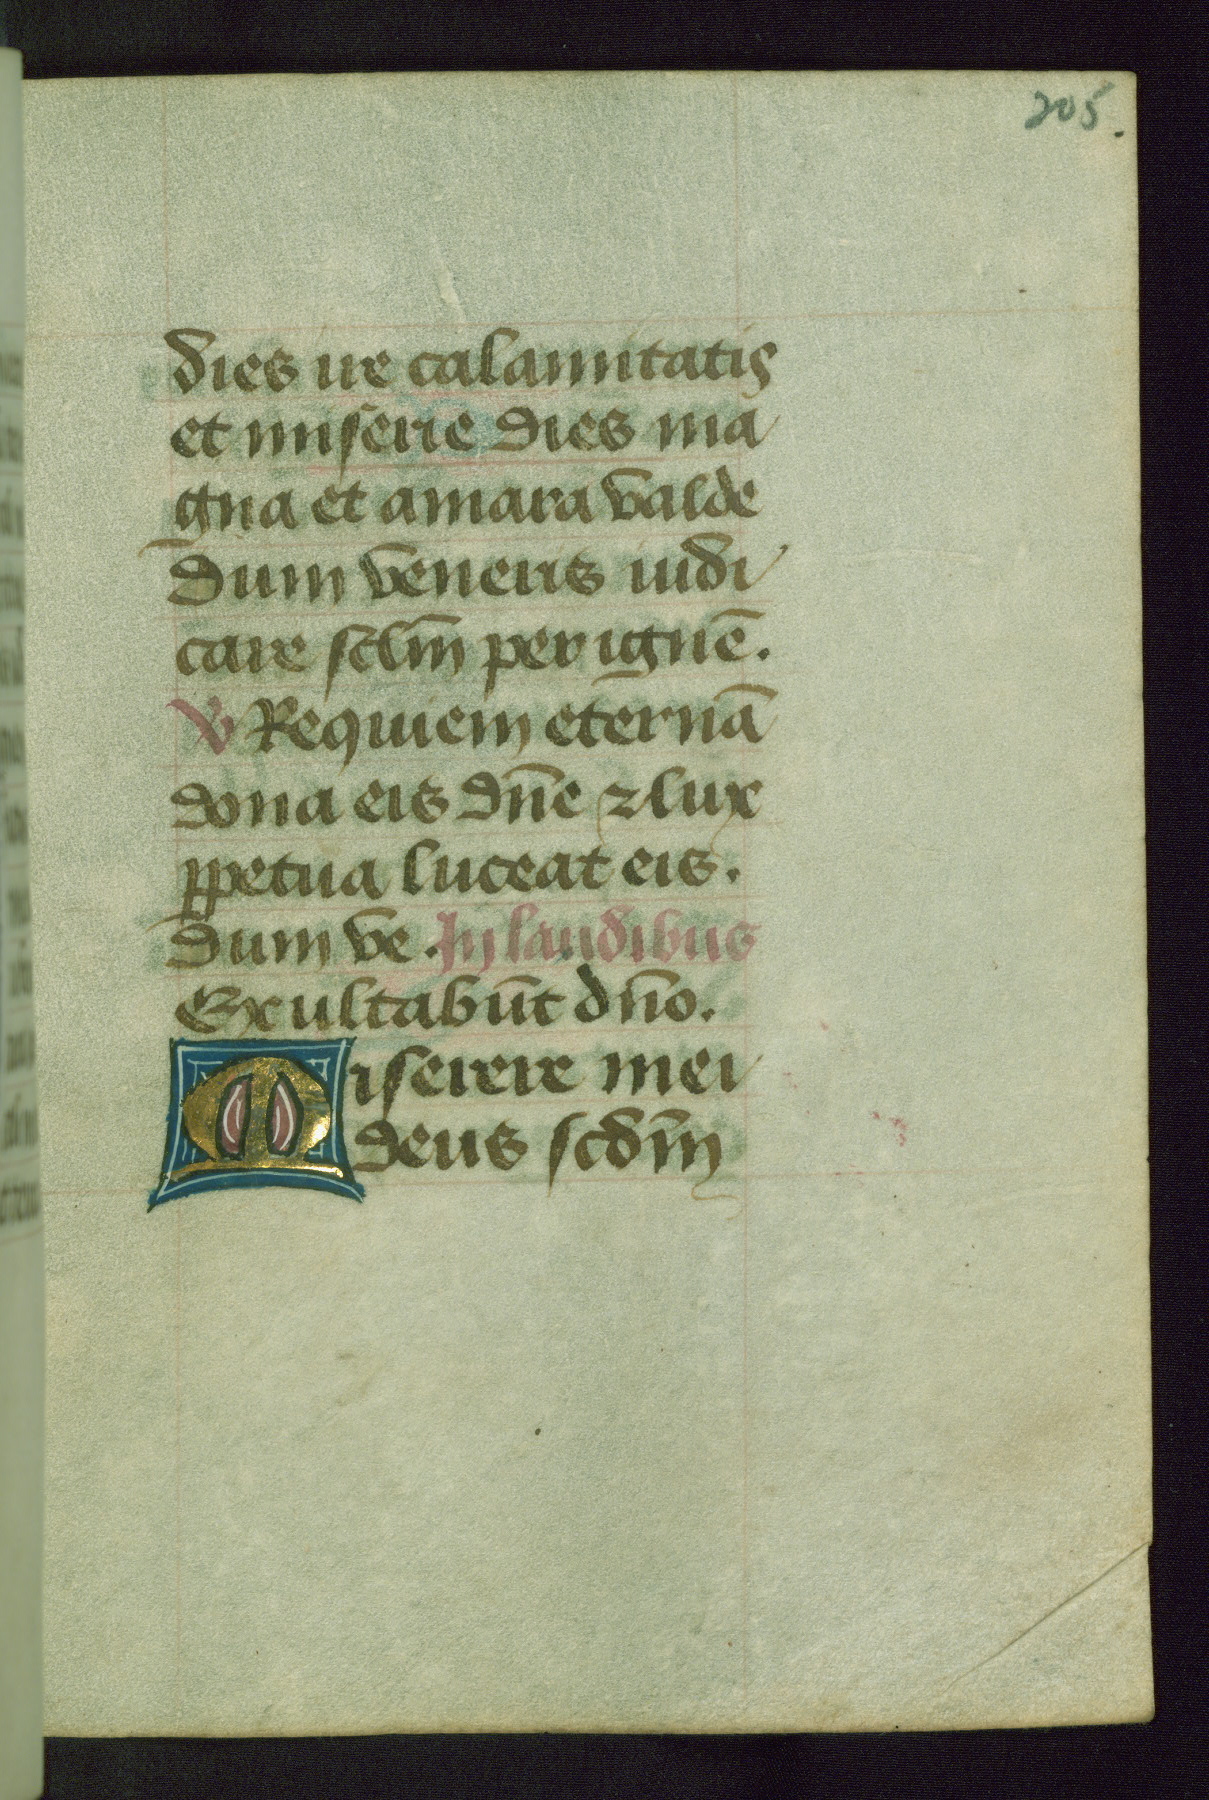 205.
dies ire calamitatis
et miserie dies ma
gna et amara valde
dum veneris iudi
care sclm̄ per ignē.
℣ Requiem eternā
dona eis dn̄e ⁊ lux
ꝑpetua luceat eis.
dum ve. In laudibus
Exultabūt dn̄o.
Miserere mei
deus scdm̄